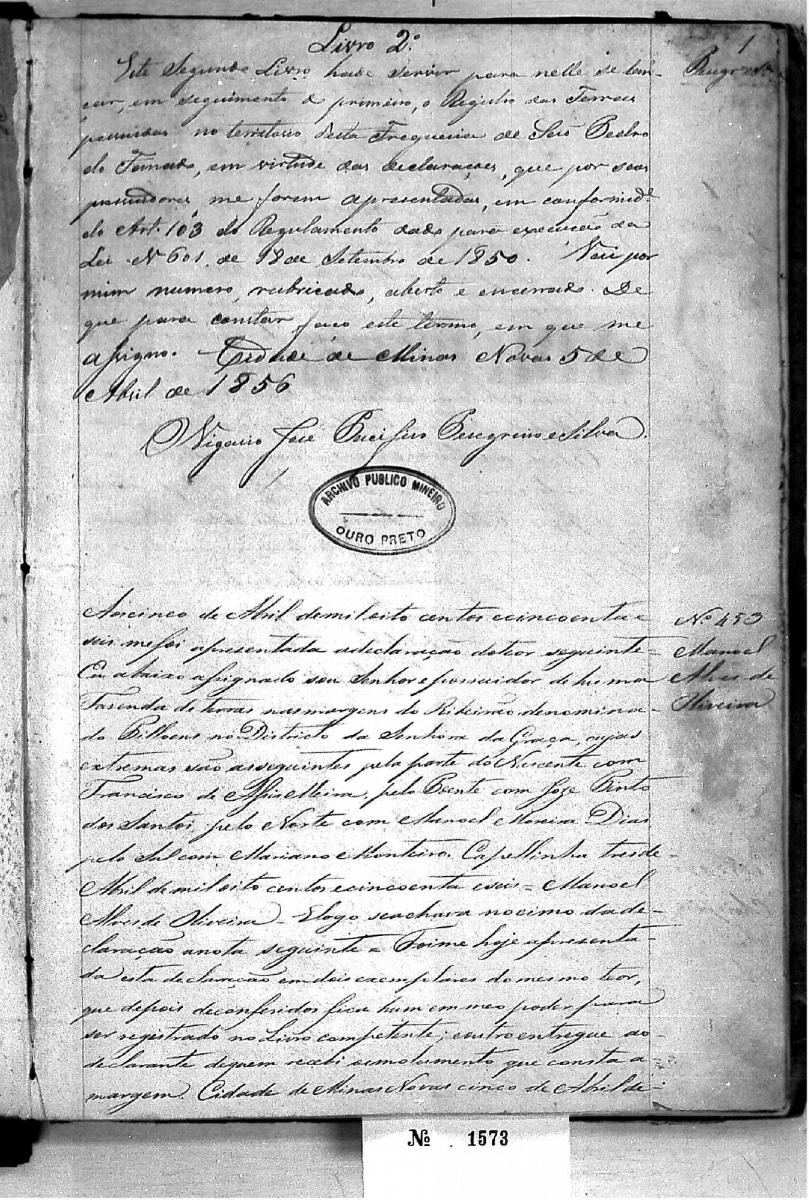 Livro 2º
1
Este Segundo Livro hade servir para nelle se lan-
çar, em seguimento do primeiro, o Registro das Terras
possuidas no territorio desta Freguesia de São Pedro
do Fanado, em virtude das declarações, que por seus
possuidores me forem apresentadas, em conformide
do Art. 103 do Regulamento dado para execução da
Lei Nº 601, de 18 de Setembro de 1850. Vai por
mim numero, rubricado, aberto e encerrado. De
que para constar faço este termo, em que me
assigno. Cidade de Minas Novas 5 de
Abril de 1856
Vigario José Pacifico Peregrino e Silva.
ARCHIVO PUBLICO MINEIRO
OURO PRETO
Aos cinco de Abril de mil oito centos e cincoenta e
seis me foi apresentada a declaração do teor seguinte =
Eu abaixo assignado sou Senhor e possuidor de huma
Fazenda de terras nas margens do Ribeirão denomina-
do no Districto da Senhora da Graça, cujas
extremas são as seguintes pela parte do Nascente com
Francisco de Assis Meira, pelo Poente com Joze Pinto
dos Santos, pelo Norte com Manoel Moreira Dias
pelo Sul com Mariano Monteiro. Capellinha tres de
Abril de mil oito centos e cincoenta e seis = Manoel
Alves de Oliveira = E logo se achava no cimo da de-
claração a nota seguinte = Foi me hoje apresenta-
da esta declaração em dois exemplares do mesmo teor,
que depois de conferidos fica hum em meo poder para
ser registrado no Livro competente; e outro entregue ao
declarante de quem recebi o emolumento que consta a
margem. Cidade de Minas Novas cinco de Abril de
Nº 453
Manoel
Alves de
Oliveira
Nº 1573